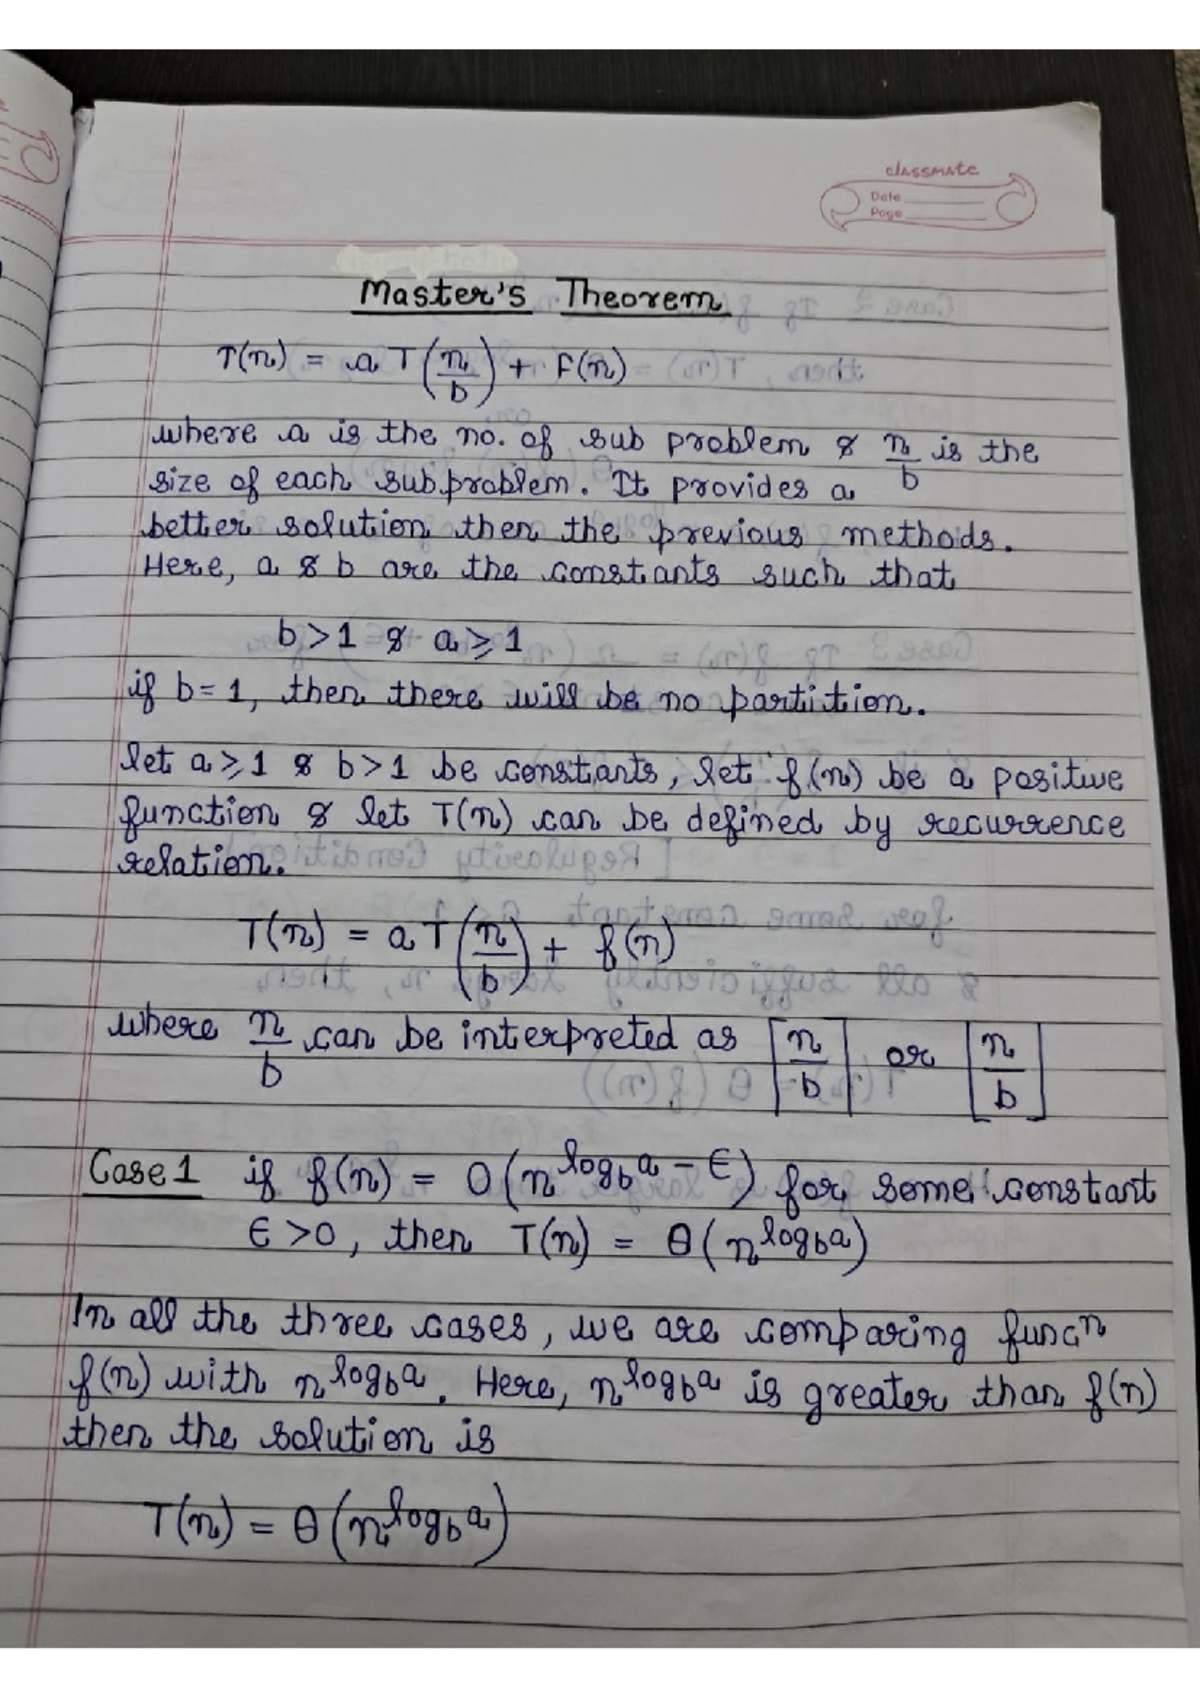 classmate
Date
Page
Master's Theorem
T(n) = a T(n/b) + F(n)
where a is the no. of sub problem & n/b is the
size of each subproblem. It provides a
better solution then the previous methods.
Here, a & b are the constants such that
b > 1 & a ⩾ 1
if b = 1, then there will be no partition.
let a ⩾ 1 & b > 1 be constants, let f(n) be a positive
function & let T(n) can be defined by recurrence
relation.
T(n) = a T(n/b) + f(n)
where n/b can be interpreted as ⌈n/b⌉ or ⌊n/b⌋
Case 1 if f(n) = O(n^(log_b a - ϵ)) for some constant
ϵ > 0, then T(n) = θ(n^(log_b a))
In all the three cases, we are comparing funcⁿ
f(n) with n^(log_b a). Here, n^(log_b a) is greater than f(n)
then the solution is
T(n) = θ(n^(log_b a))